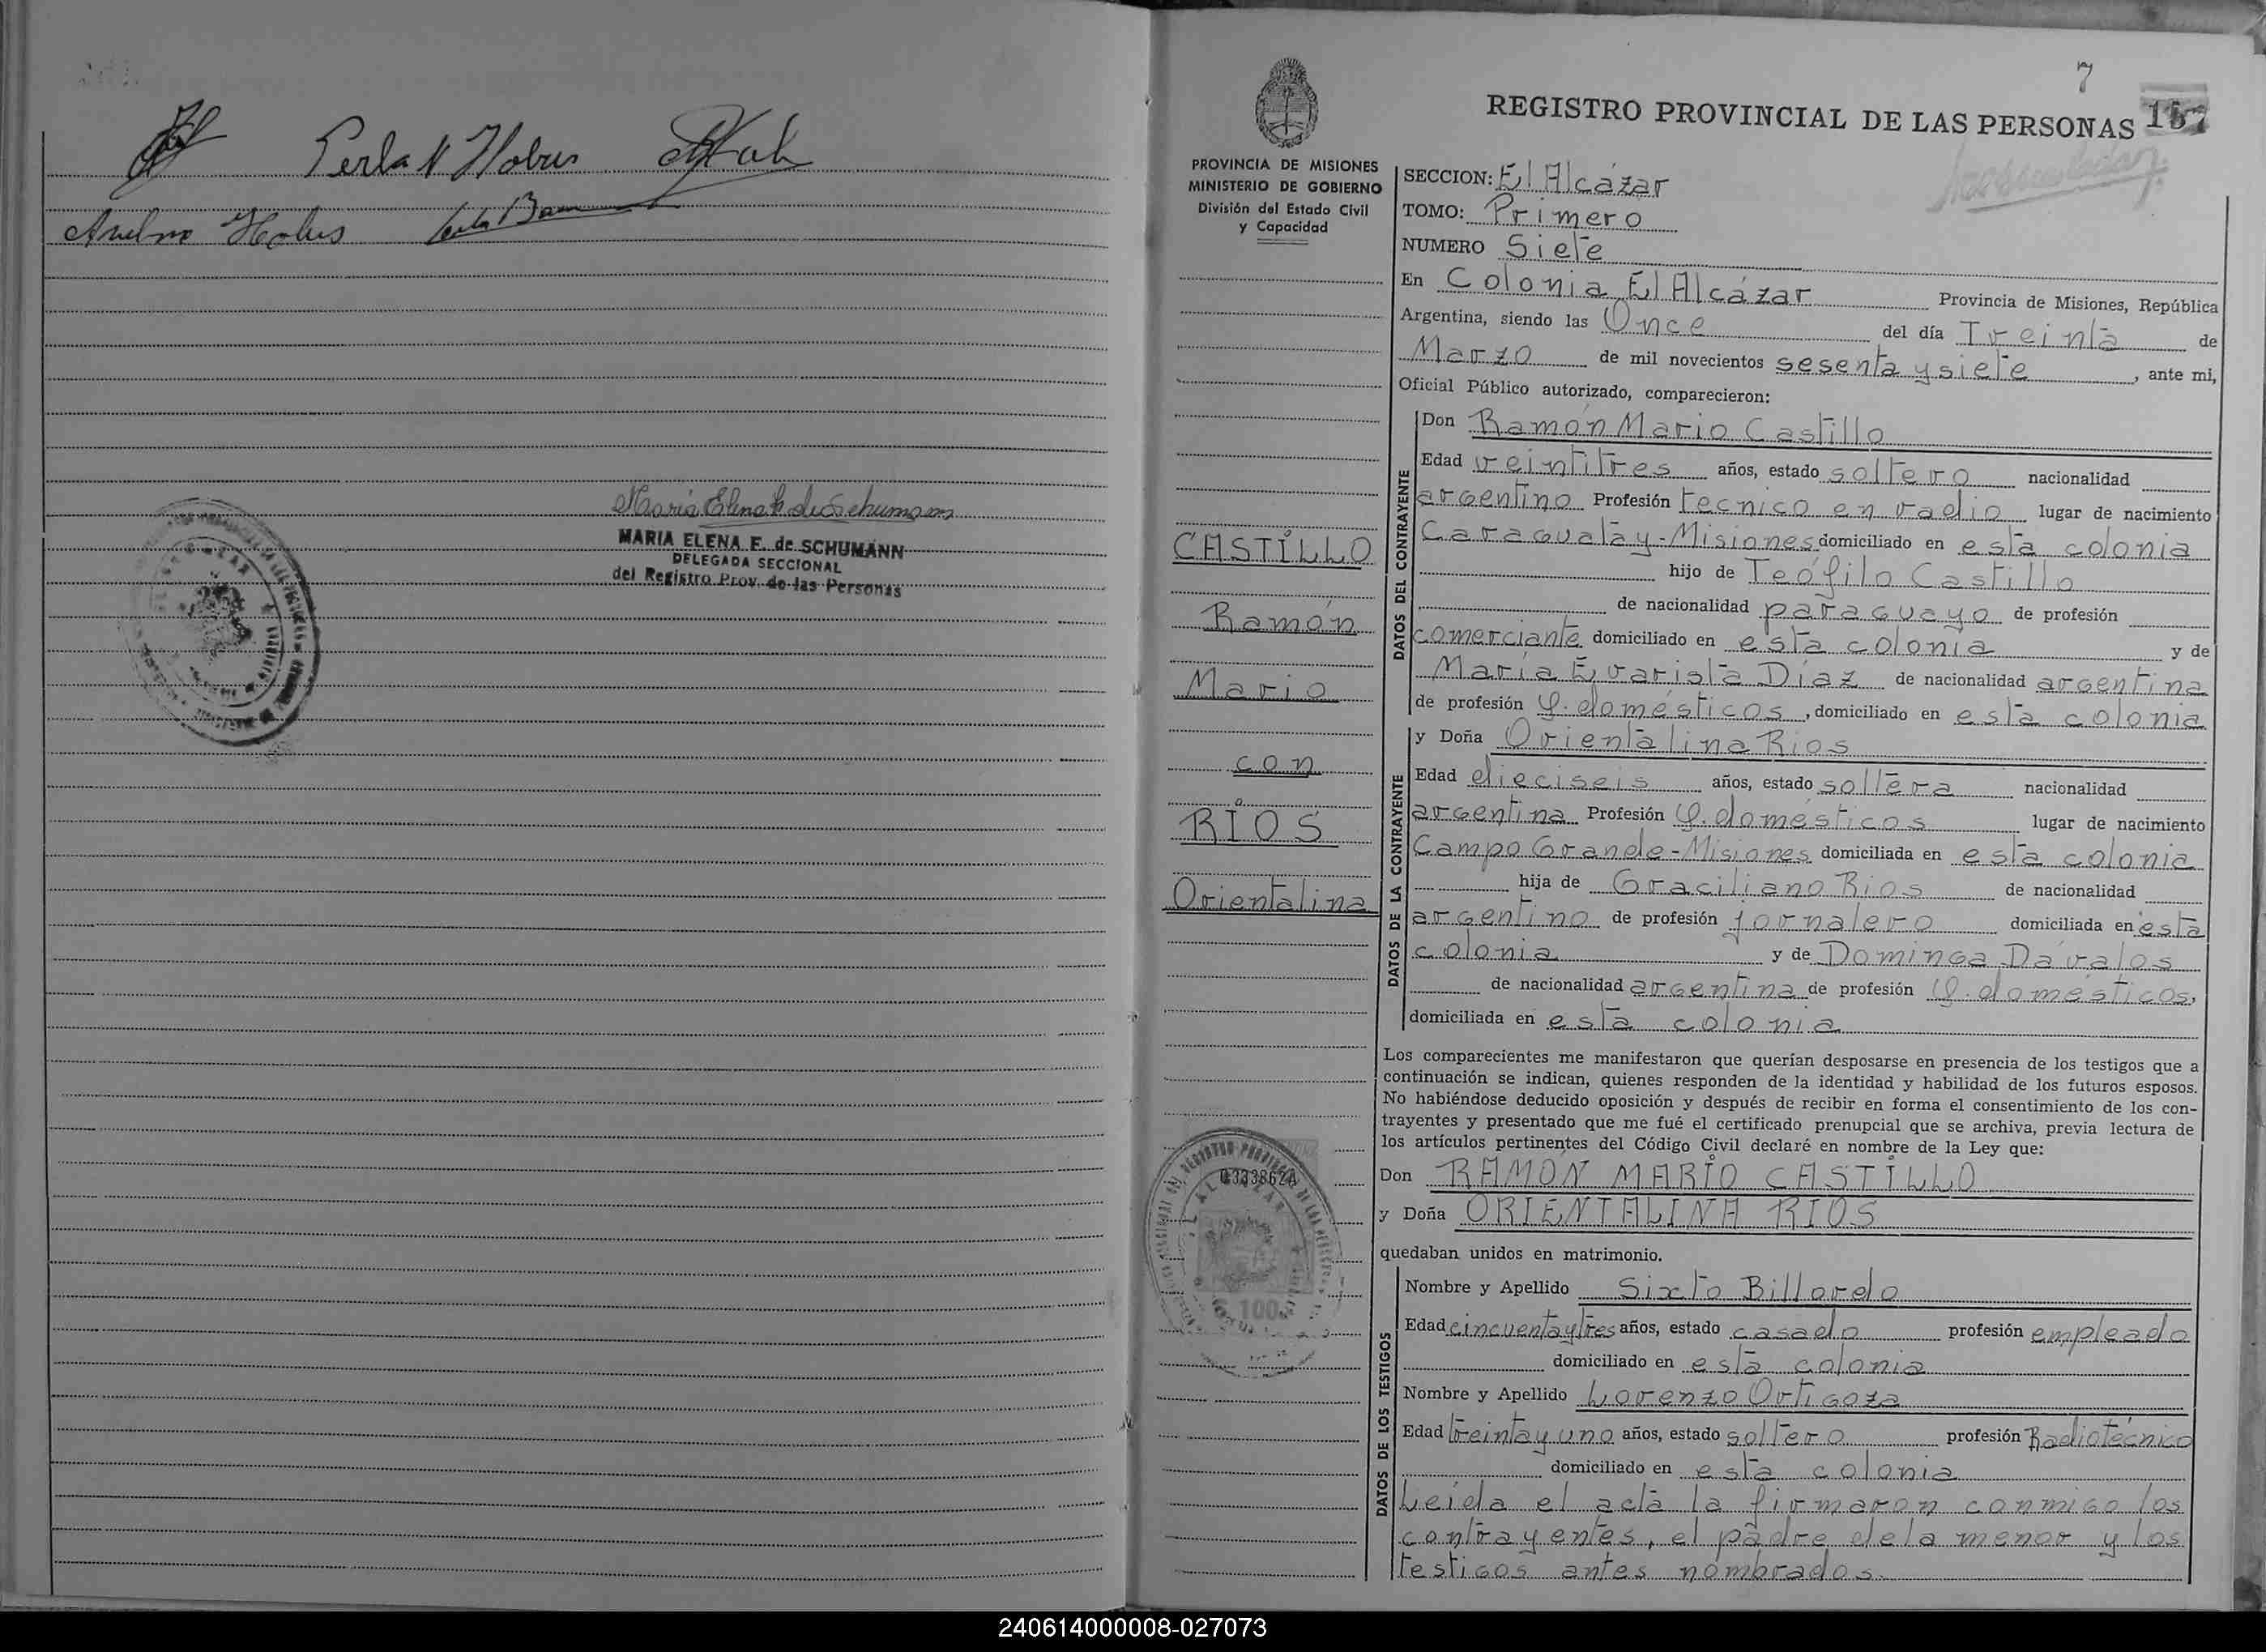 Perla N Hobus
Anelmo Hobus
Maria Elena F. de Schumann
MARIA ELENA F. de SCHUMANN
DELEGADA SECCIONAL
del Registro Prov. de las Personas
7
REGISTRO PROVINCIAL DE LAS PERSONAS 157
PROVINCIA DE MISIONES
MINISTERIO DE GOBIERNO
División del Estado Civil
y Capacidad
CASTILLO
Ramón
Mario
con
RIOS
Orientalina
0333862A
100
SECCION: El Alcázar
TOMO: Primero
NUMERO Siete
En Colonia El Alcázar Provincia de Misiones, República
Argentina, siendo las Once del día Treinta de
Marzo de mil novecientos sesenta y siete, ante mi,
Oficial Público autorizado, comparecieron:
DATOS DEL CONTRAYENTE
Don Ramón Mario Castillo
Edad veintitres años, estado soltero nacionalidad
argentino Profesión tecnico en radio lugar de nacimiento
Caraguatay-Misiones domiciliado en esta colonia
hijo de Teófilo Castillo
de nacionalidad paraguayo de profesión
comerciante domiciliado en esta colonia y de
María Evarista Díaz de nacionalidad argentina
de profesión Q. domésticos, domiciliado en esta colonia
DATOS DE LA CONTRAYENTE
y Doña Orientalina Rios
Edad dieciseis años, estado soltera nacionalidad
argentina Profesión Q. domésticos lugar de nacimiento
Campo Grande-Misiones domiciliada en esta colonia
hija de Graciliano Rios de nacionalidad
argentino de profesión jornalero domiciliada en esta
colonia y de Dominga Dávalos
de nacionalidad argentina de profesión Q. domésticos,
domiciliada en esta colonia
Los comparecientes me manifestaron que querían desposarse en presencia de los testigos que a
continuación se indican, quienes responden de la identidad y habilidad de los futuros esposos.
No habiéndose deducido oposición y después de recibir en forma el consentimiento de los con-
trayentes y presentado que me fué el certificado prenupcial que se archiva, previa lectura de
los artículos pertinentes del Código Civil declaré en nombre de la Ley que:
Don RAMÓN MARIO CASTILLO
y Doña ORIENTALINA RIOS
quedaban unidos en matrimonio.
DATOS DE LOS TESTIGOS
Nombre y Apellido Sixto Billordo
Edad cincuenta y tres años, estado casado profesión empleado
domiciliado en esta colonia
Nombre y Apellido Lorenzo Ortigoza
Edad treinta y uno años, estado soltero profesión Radiotécnico
domiciliado en esta colonia
Leída el acta la firmaron conmigo los
contrayentes, el padre de la menor y los
testigos antes nombrados.
240614000008-027073